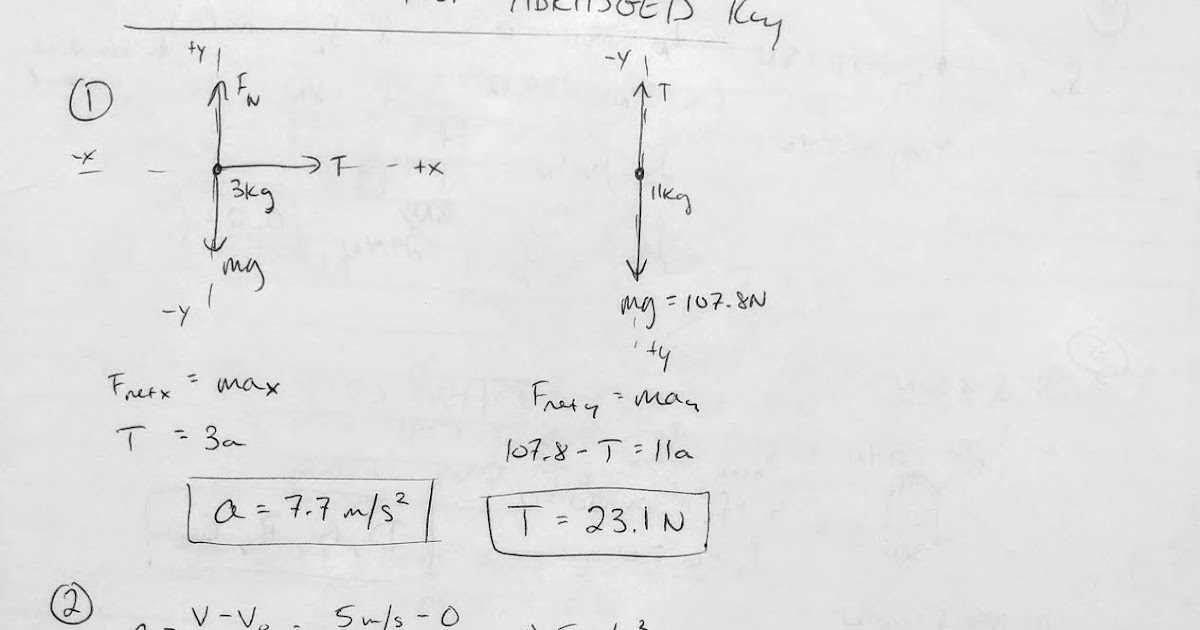 ABRIDGED Key
①
+y
F_N
-x
T - +x
3kg
mg
-y
-y
T
11kg
mg = 107.8N
+y
Fnetx = max
T = 3a
a = 7.7 m/s²
Fnety = may
107.8 - T = 11a
T = 23.1 N
②
V-V₀ 5m/s - 0